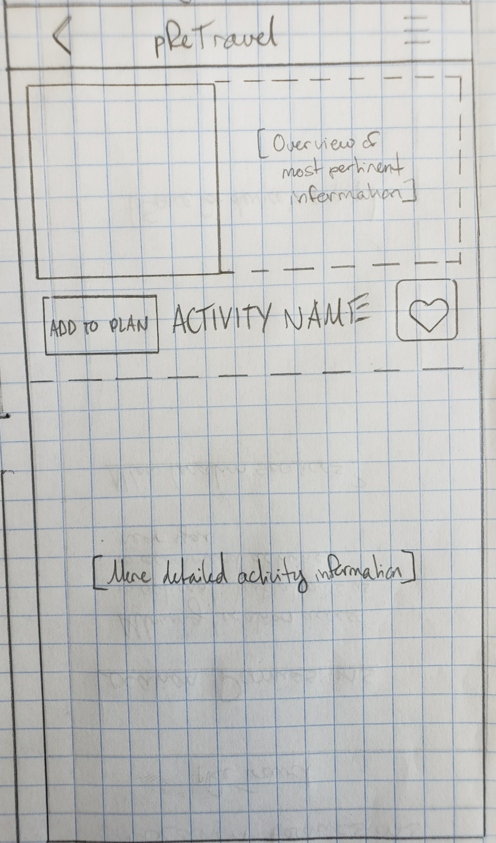 pReTravel
[Overview of
most pertinent
information]
ADD TO PLAN
ACTIVITY NAME
[More detailed activity information]